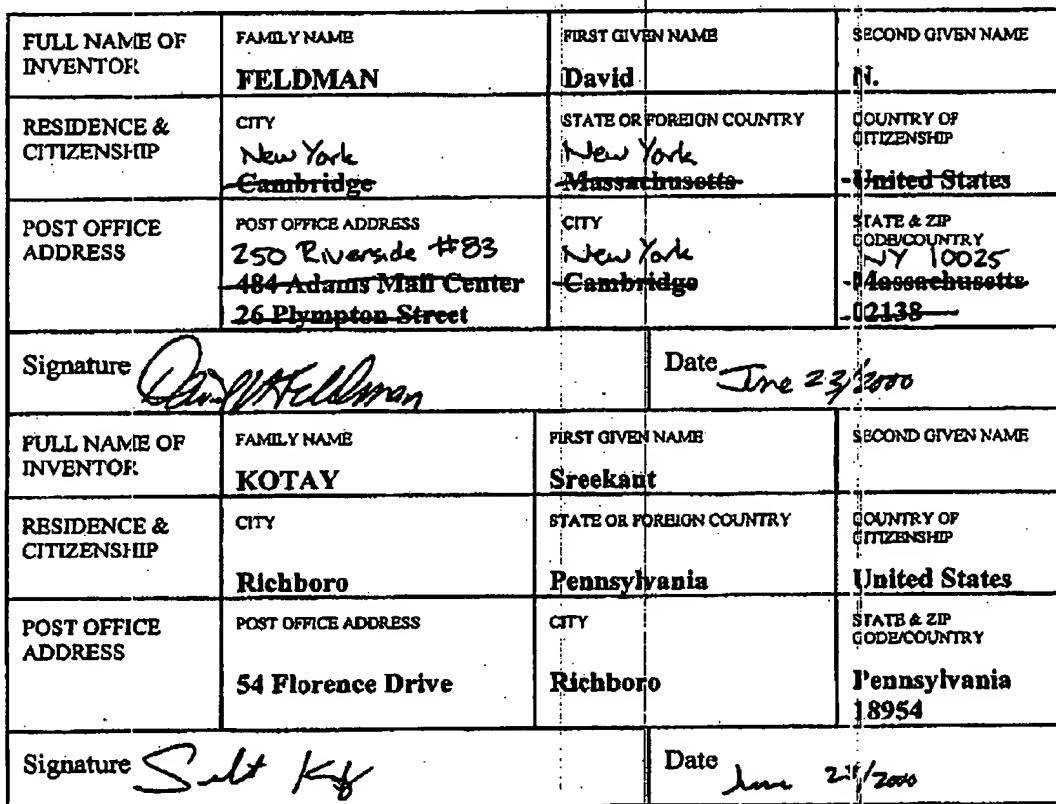 FULL NAME OF INVENTOR
FAMILY NAME
FELDMAN
FIRST GIVEN NAME
David
SECOND GIVEN NAME
N.
RESIDENCE & CITIZENSHIP
CITY
New York
Cambridge
STATE OR FOREIGN COUNTRY
New York
Massachusetts
COUNTRY OF CITIZENSHIP
United States
POST OFFICE ADDRESS
POST OFFICE ADDRESS
250 Riverside #83
484 Adams Mail Center
26 Plympton Street
CITY
New York
Cambridge
STATE & ZIP CODE/COUNTRY
NY 10025
Massachusetts
02138
Signature David N Feldman
Date June 23, 2000
FULL NAME OF INVENTOR
FAMILY NAME
KOTAY
FIRST GIVEN NAME
Sreekant
SECOND GIVEN NAME
RESIDENCE & CITIZENSHIP
CITY
Richboro
STATE OR FOREIGN COUNTRY
Pennsylvania
COUNTRY OF CITIZENSHIP
United States
POST OFFICE ADDRESS
POST OFFICE ADDRESS
54 Florence Drive
CITY
Richboro
STATE & ZIP CODE/COUNTRY
Pennsylvania
18954
Signature
Date June /2000